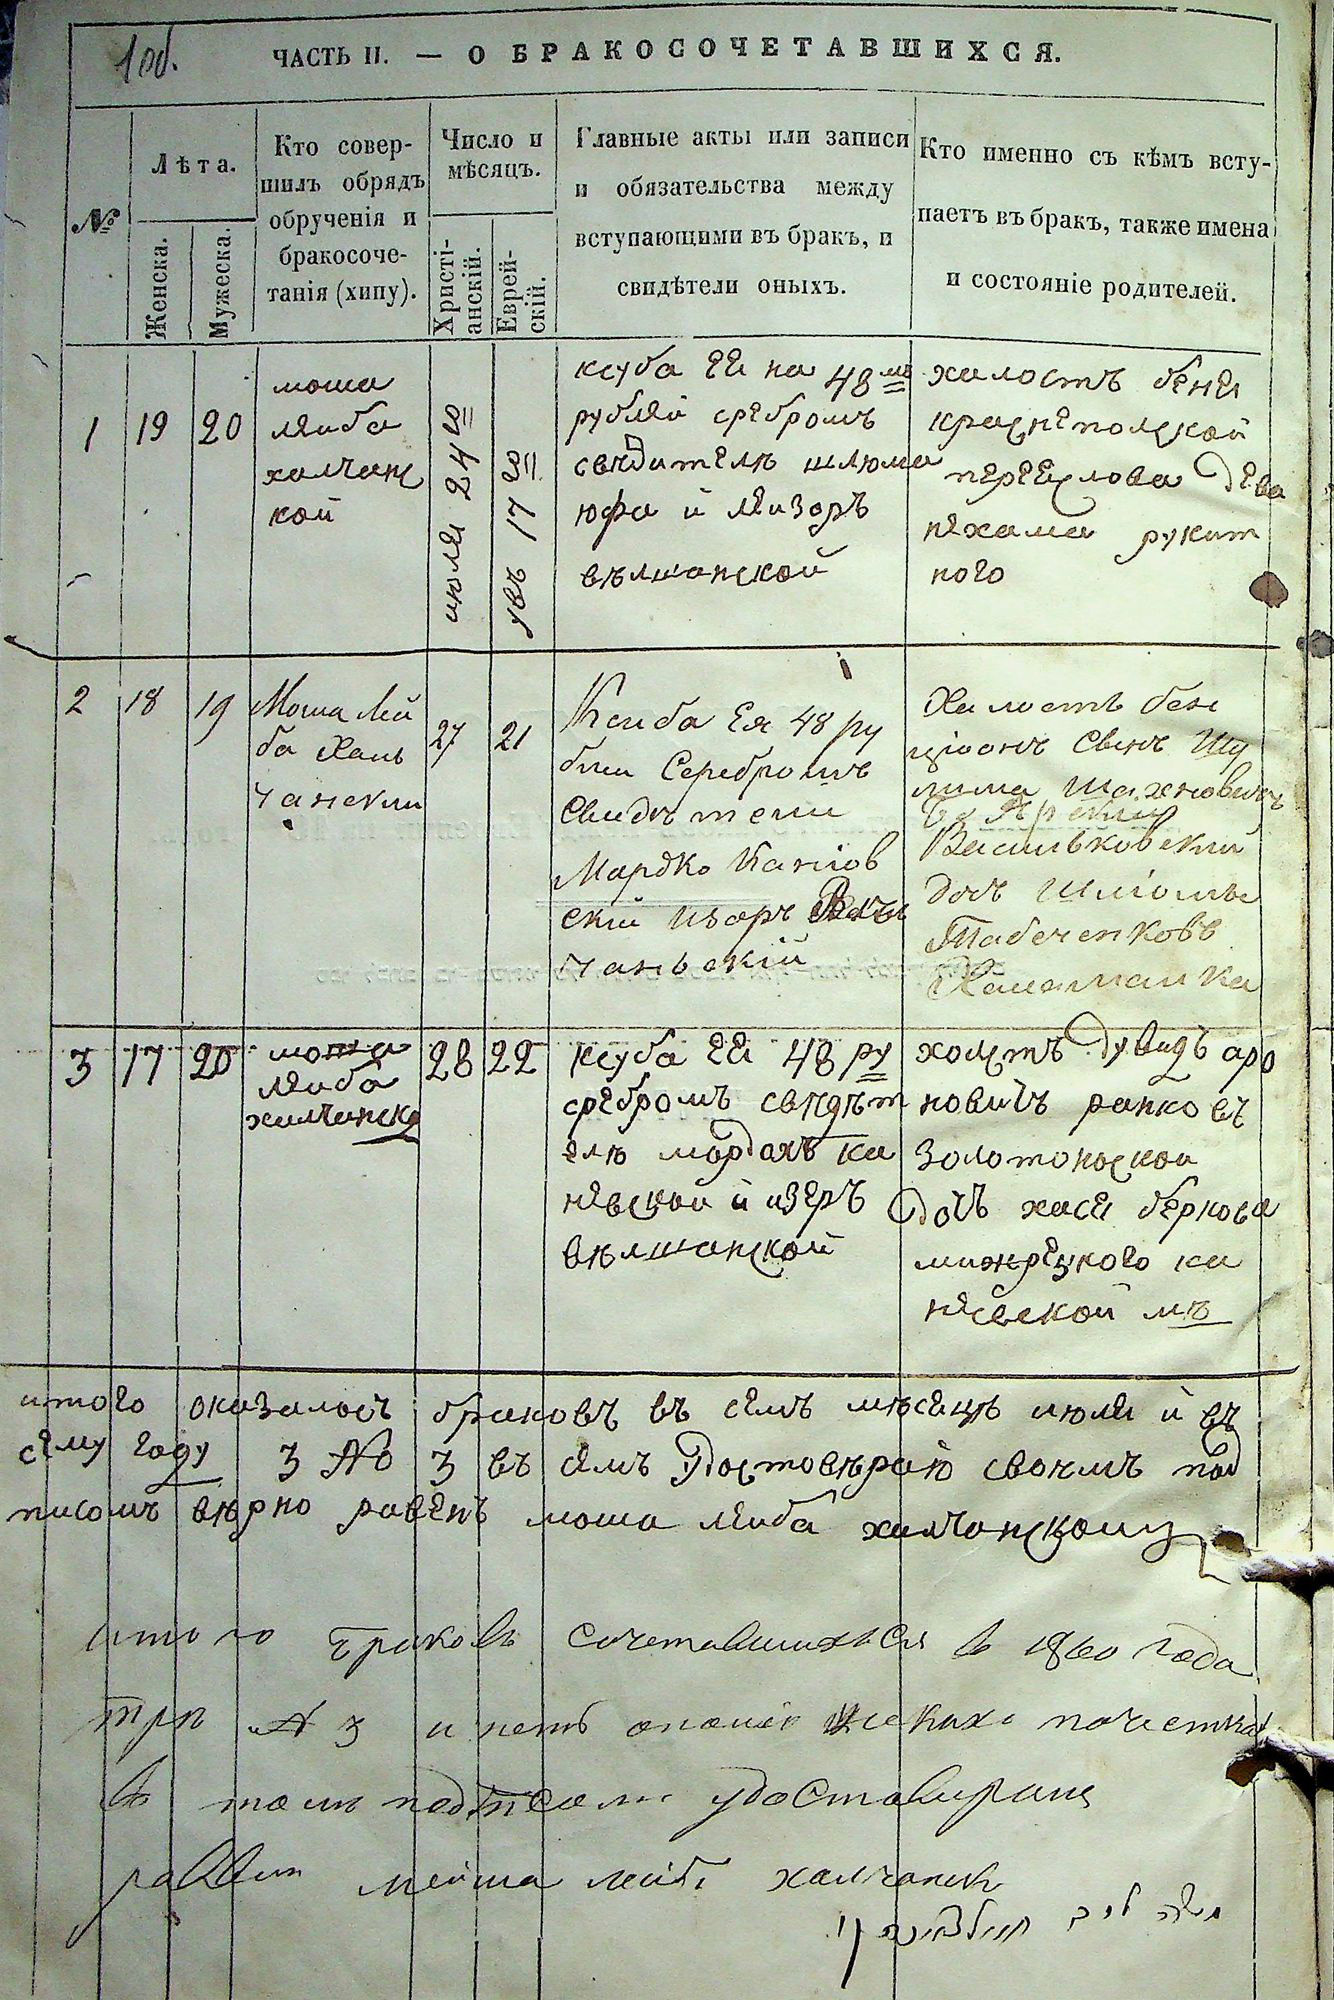 1 об.
ЧАСТЬ II. — О БРАКОСОЧЕТАВШИХСЯ.
№
Лѣта.
Женска.
Мужеска.
Кто совер-
шилъ обрядъ
обрученія и
бракосоче-
танія (хипу).
Число и
мѣсяцъ.
Христі-
анскій.
Еврей-
скій.
Главные акты или записи
и обязательства между
вступающими въ бракъ, и
свидѣтели оныхъ.
Кто именно съ кѣмъ всту-
паетъ въ бракъ, также имена
и состояніе родителей.
1
19
20
моша
леиба
халчанс
кой
июля 24
17
ксуба ея на 48 мъ
рублей сребромъ
свѣдителѣ шлюма
юфа и леизоръ
вѣлшанской
халостъ бенея
краснеполской
переяслова дева
нехама рукит
ного
2
18
19
Моша Лей
ба Халь
чански
27
21
Ксиба Ея 48 ру
бли Серебромъ
Свидѣтели
Мардко Каніов
скій Изоръ
чаньскій
Халостъ бен
ціонъ Свинъ Шу
лима Шахновичъ
Васильковский
дочъ Шліомы
Табеченковъ
3
17
20
моша
леиба
халчанско
28
22
ксуба ея 48 ру
сребромъ свѣдѣт
елѣ мордахъ ка
невской и изеръ
вѣлшанской
холстъ дувидъ аро
новичъ рапковъ
золотоноской
дочъ хася беркова
мижрецкого ка
невской мъ
итого оказалось браковъ въ семъ мѣсецѣ июля и въ
сему году 3 № 3 въ семъ Удостовѣраю своимъ под
писомъ вѣрно равенъ моша леиба халчанскому
итого браковъ сочетавшихся в 1860 года
три № 3 и нетъ
в томъ подписомъ удоставираиц
раввин мойша лейб халчанск
משה ליב